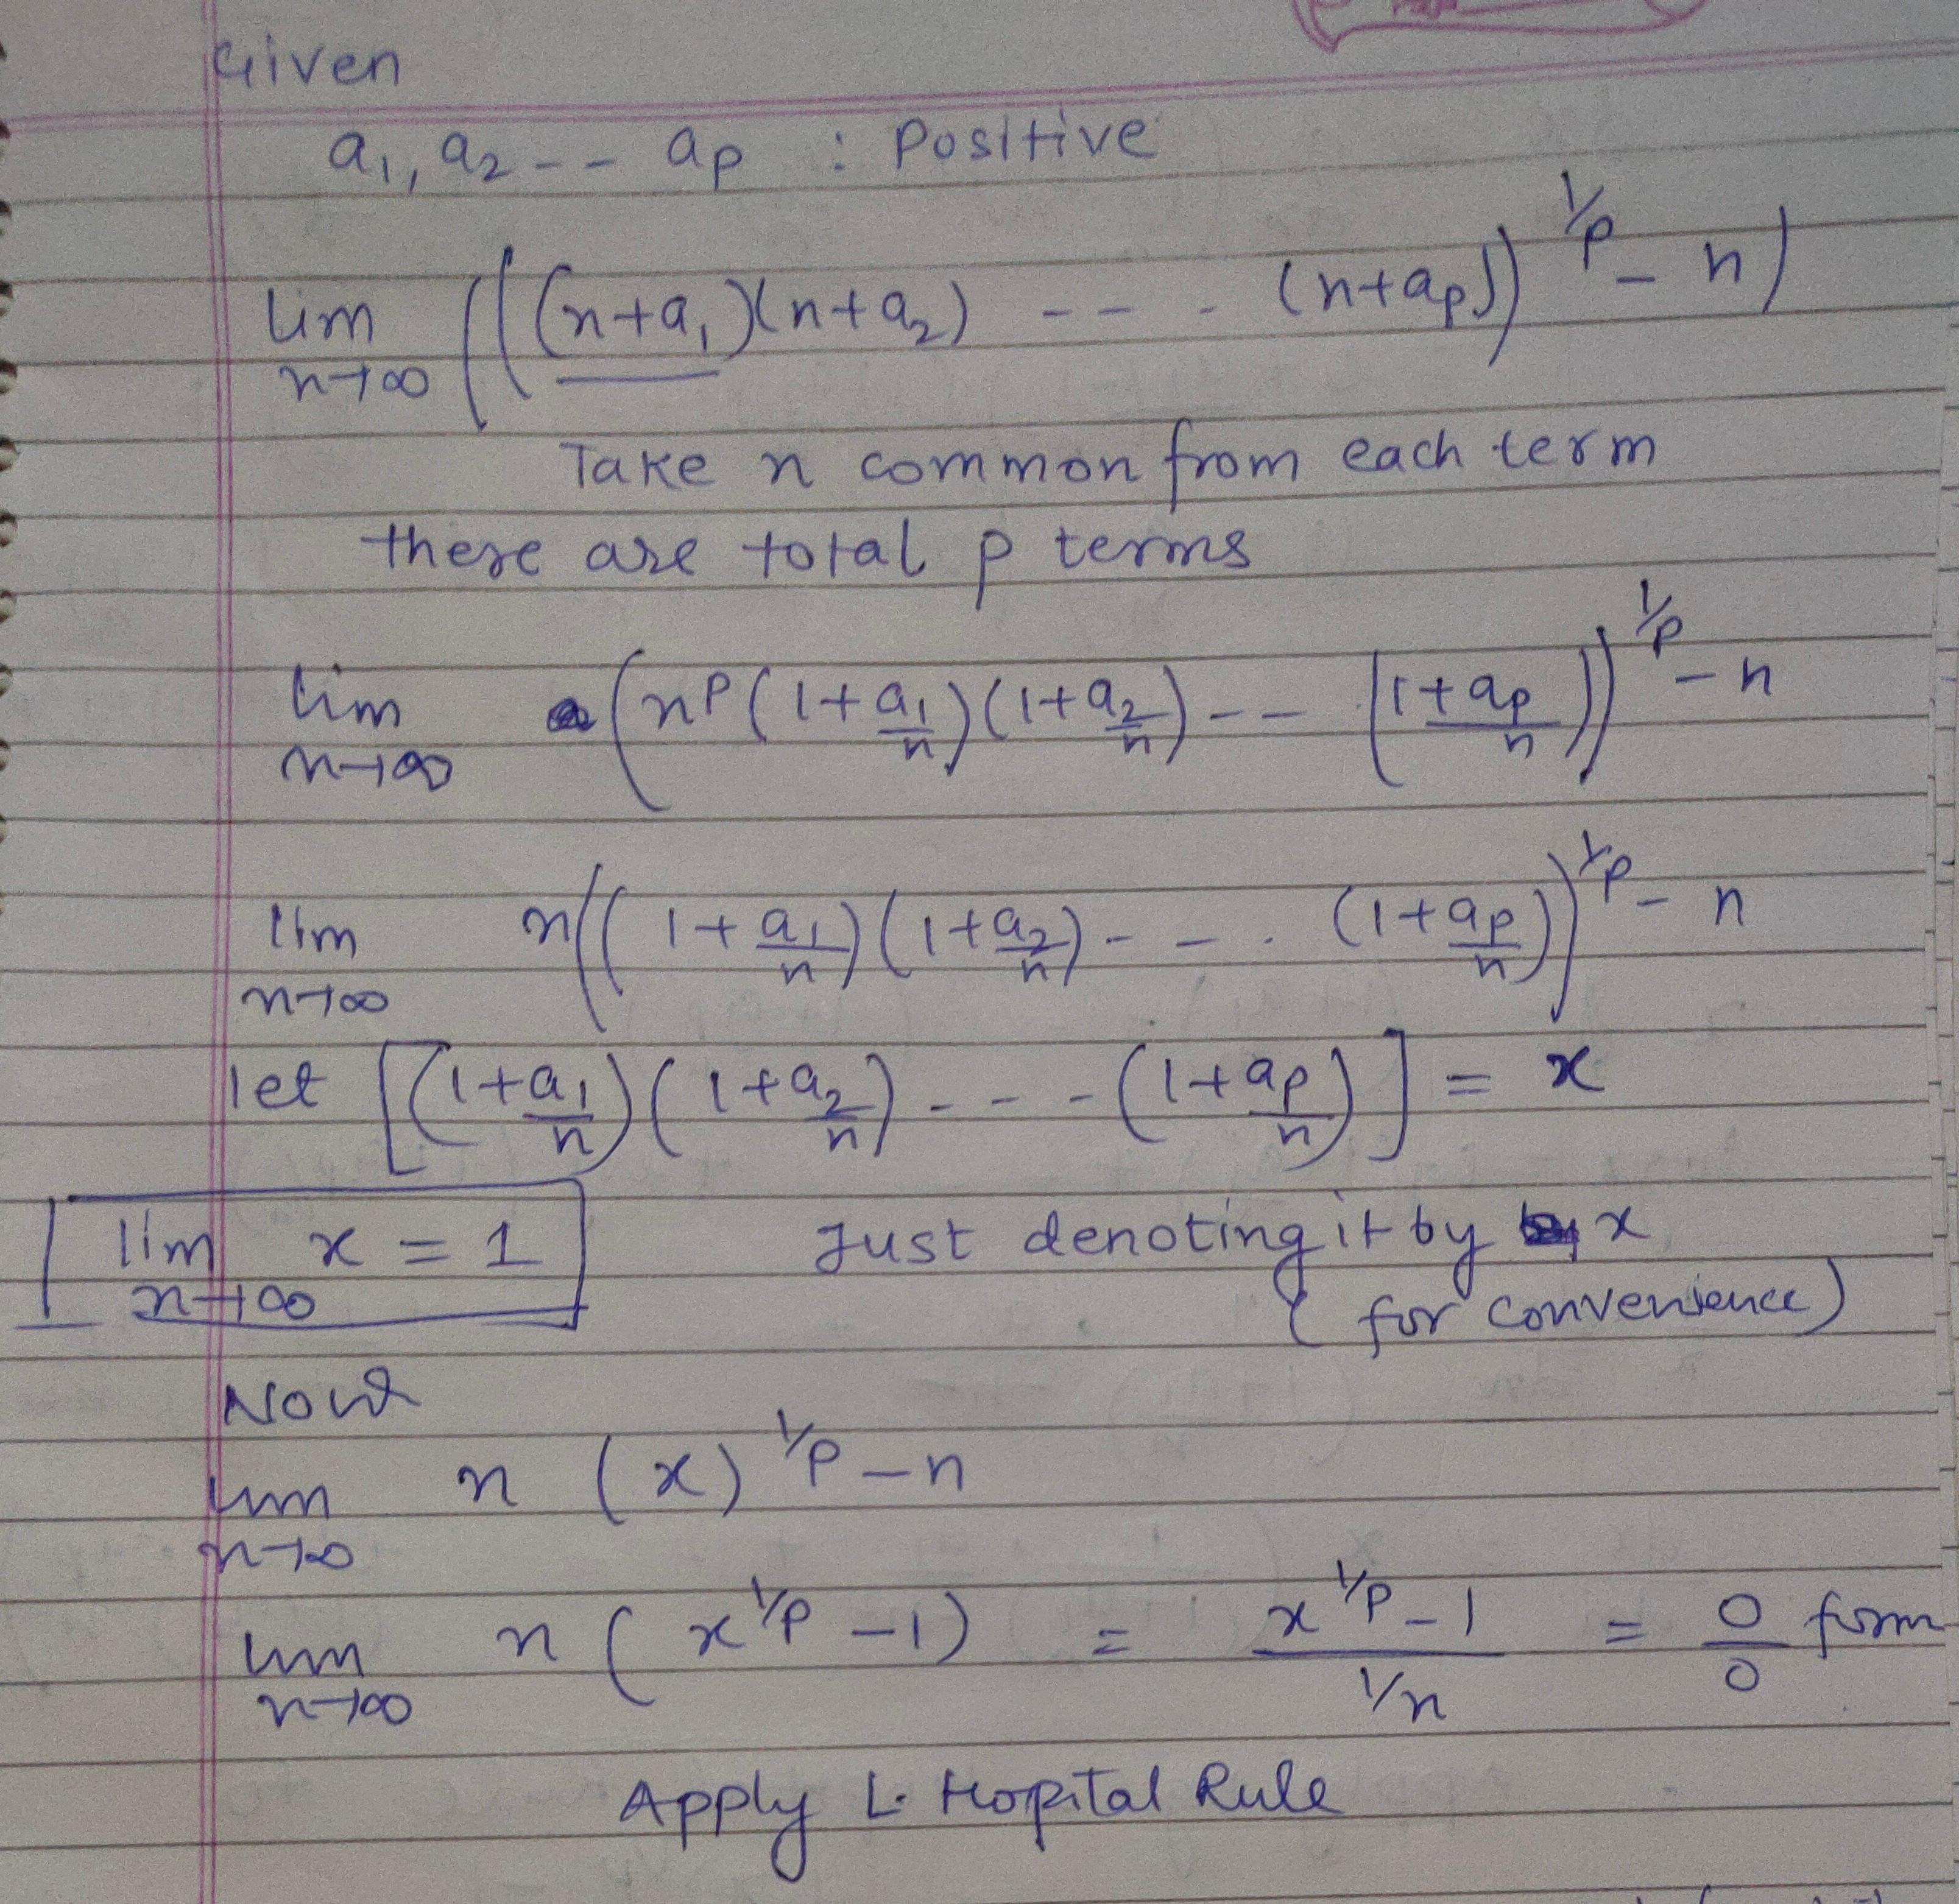 Given
a₁, a₂ -- aₚ : Positive
lim n→∞ (((n+a₁)(n+a₂) --- (n+aₚ))^(1/p) - n)
Take n common from each term
there are total p terms
lim n→∞ (n^p (1+a₁/n)(1+a₂/n) -- (1+aₚ/n))^(1/p) - n
lim n→∞ n((1+a₁/n)(1+a₂/n) --- (1+aₚ/n))^(1/p) - n
let [(1+a₁/n)(1+a₂/n) --- (1+aₚ/n)] = x
lim n→∞ x = 1 Just denoting it by x
(for convenience)
Now
lim n→∞ n (x)^(1/p) - n
lim n→∞ n (x^(1/p) - 1) = (x^(1/p) - 1)/(1/n) = 0/0 form
Apply L. Hopital Rule